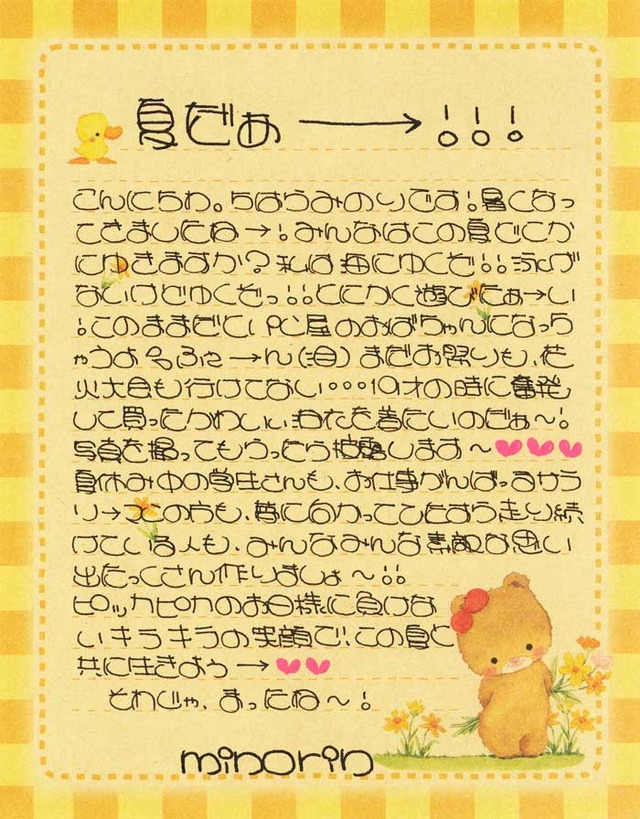 夏だぁ→!!!
こんにちわ。ちはらみのりです!暑くなっ
てきましたね→!みんなはこの夏どこか
にゆきますか?私は海にゆくぞ!!泳げ
ないけどゆくぞっ!!とにかく遊びたぁ→い
!このままだとPC屋のおばちゃんになっち
ゃうよぉふぇ→ん(泪)まだお祭りも、花
火大会も行けてない…19才の時に奮発
して買ったかわいいゆかたを着たいのだぁ~!
写真を撮ってもらったら披露します~
夏休み中の学生さんも、お仕事がんばるサラ
リ→の方も、夢に向かってひたすら走り続
けている人も、みんなみんな素敵な思い
出たっくさん作りましょ~!!
ピッカピカのお日様に負けな
いキラキラの笑顔で、この夏と
共に生きよう→
それじゃ、まったね~!
minorin